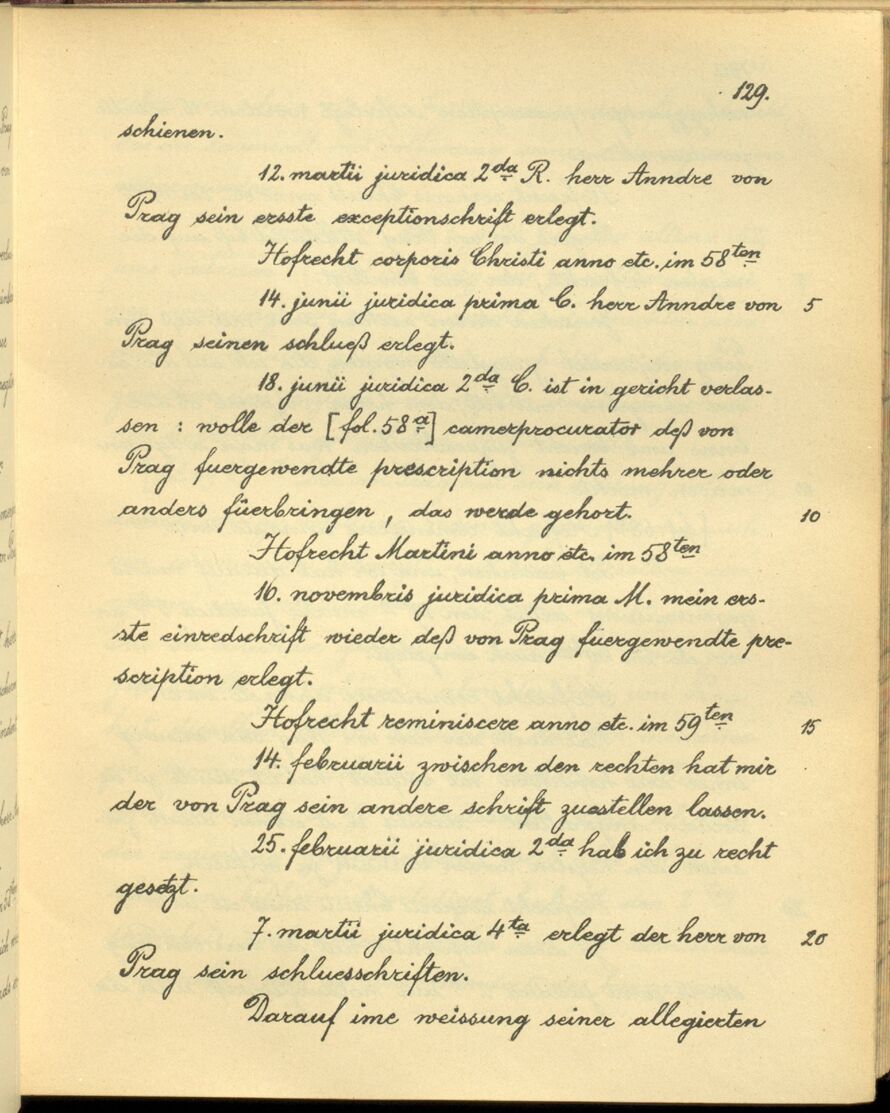 129.
schienen.
12. martii juridica 2da R. herr Anndre von
Prag sein ersste exceptionschrift erlegt.
Hofrecht corporis Christi anno etc. im 58ten
14. junii juridica prima C. herr Anndre von 5
Prag seinen schlueß erlegt.
18. junii juridica 2da C. ist in gericht verlas-
sen : wolle der [fol. 58a] camerprocurator deß von
Prag fuergewendte prescription nichts mehrer oder
anders füerbringen, das werde gehort. 10
Hofrecht Martini anno etc. im 58ten
16. novembris juridica prima M. mein ers-
ste einredschrift wieder deß von Prag fuergewendte pre-
scription erlegt.
Hofrecht reminiscere anno etc. im 59ten 15
14. februarii zwischen den rechten hat mir
der von Prag sein andere schrift zuestellen lassen.
25. februarii juridica 2da hab ich zu recht
gesetzt.
7. martii juridica 4ta erlegt der herr von 20
Prag sein schluesschriften.
Darauf ime weissung seiner allegierten